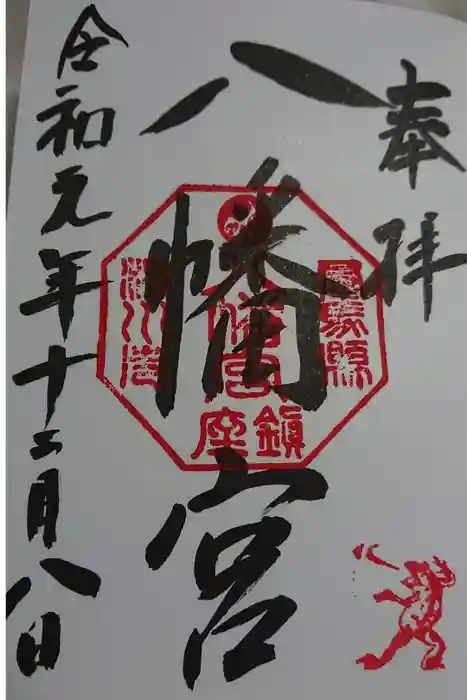 奉拝
八幡宮
八幡宮
鎮座
令和元年十二月八日